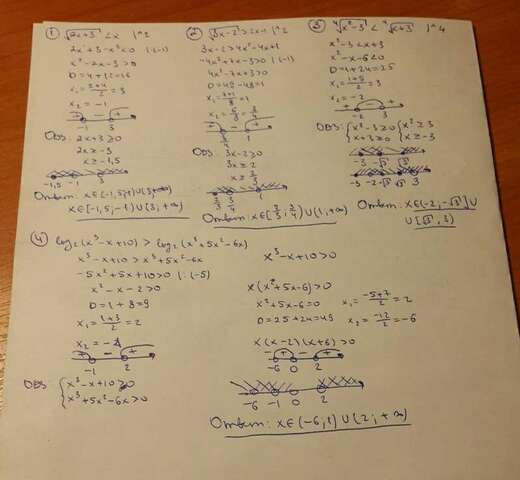 ① √2x+3 < x |^2
2x+3-x²<0 |·(-1)
x²-2x-3>0
D=4+12=16
x₁=(2+4)/2=3
x₂=-1
+ - +
-1 3
ОДЗ: 2x+3≥0
2x≥-3
x≥-1,5
-1,5 -1 3
x∈[-1,5;-1)∪(3;+∞)
② √3x-2 > 2x-1 |^2
3x-2>4x²-4x+1
-4x²+7x-3>0 |(-1)
4x²-7x+3>0
D=49-48=1
ОДЗ: 3x-2≥0
3x≥2
x≥2/3
③ ⁴√x²-3 < ⁴√x+3 |^4
x²-3<x+3
x²-x-6<0
D=1+24=25
x₁=(1+5)/2=3
x₂=-2
+ - +
-2 3
ОДЗ: {x²-3≥0 {x²≥3
x+3≥0 x≥-3
-3 -2 -√3 √3 3
Ответ: x∈(-2;-√3]∪
∪[√3;3)
④ log₂(x³-x+10) > log₂(x³+5x²-6x)
x³-x+10>x³+5x²-6x
-5x²+5x+10>0 |:(-5)
x²-x-2>0
D=1+8=9
x₁=(1+3)/2=2
+ - +
-1 2
ОДЗ: {x³-x+10>0
x³+5x²-6x>0
x³-x+10>0
x(x²+5x-6)>0
x²+5x-6=0 x₁=(-5+7)/2=2
D=25+24=49 x₂=-12/2=-6
x(x-2)(x+6)>0
- + - +
-6 0 2
-6 -1 0 2
Ответ: x∈(-6;1)∪(2;+∞)